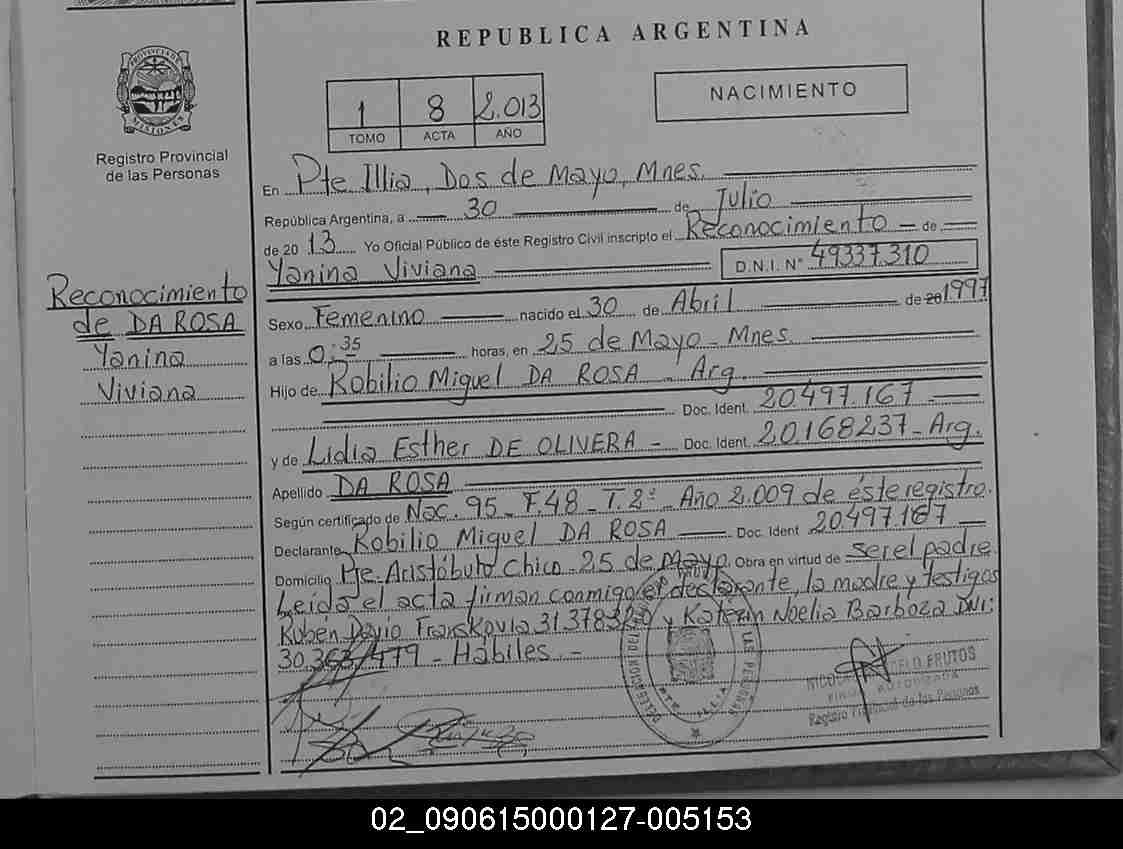 REPUBLICA ARGENTINA
1 8 2.013
TOMO ACTA AÑO
NACIMIENTO
PROVINCIA DE MISIONES
Registro Provincial
de las Personas
En Pte Illia, Dos de Mayo, Mnes.
República Argentina, a 30 de Julio
de 20 13 Yo Oficial Público de éste Registro Civil inscripto el Reconocimiento de
Yanina Viviana D.N.I. N° 49337.310
Sexo Femenino nacido el 30 de Abril de 20 1997
a las 0:35 horas, en 25 de Mayo - Mnes.
Hijo de Robilio Miguel DA ROSA - Arg.
Doc. Ident. 20.497.167
y de Lidia Esther DE OLIVERA - Doc. Ident. 20.168237 - Arg.
Apellido DA ROSA
Según certificado de Nac. 95 - F.48 - T.2° - Año 2.009 de éste registro.
Declarante Robilio Miguel DA ROSA Doc. Ident 20.497.167
Domicilio Pje. Aristóbulo Chico - 25 de Mayo. Obra en virtud de ser el padre.
Leída el acta firman conmigo el declarante, la madre y testigos
Rubén Darío 31.378320 y Noelia Barboza DNI:
30.363.479 - Hábiles. -
Reconocimiento
de DA ROSA
Yanina
Viviana
FRUTOS
Registro Provincial de las Personas
02_090615000127-005153